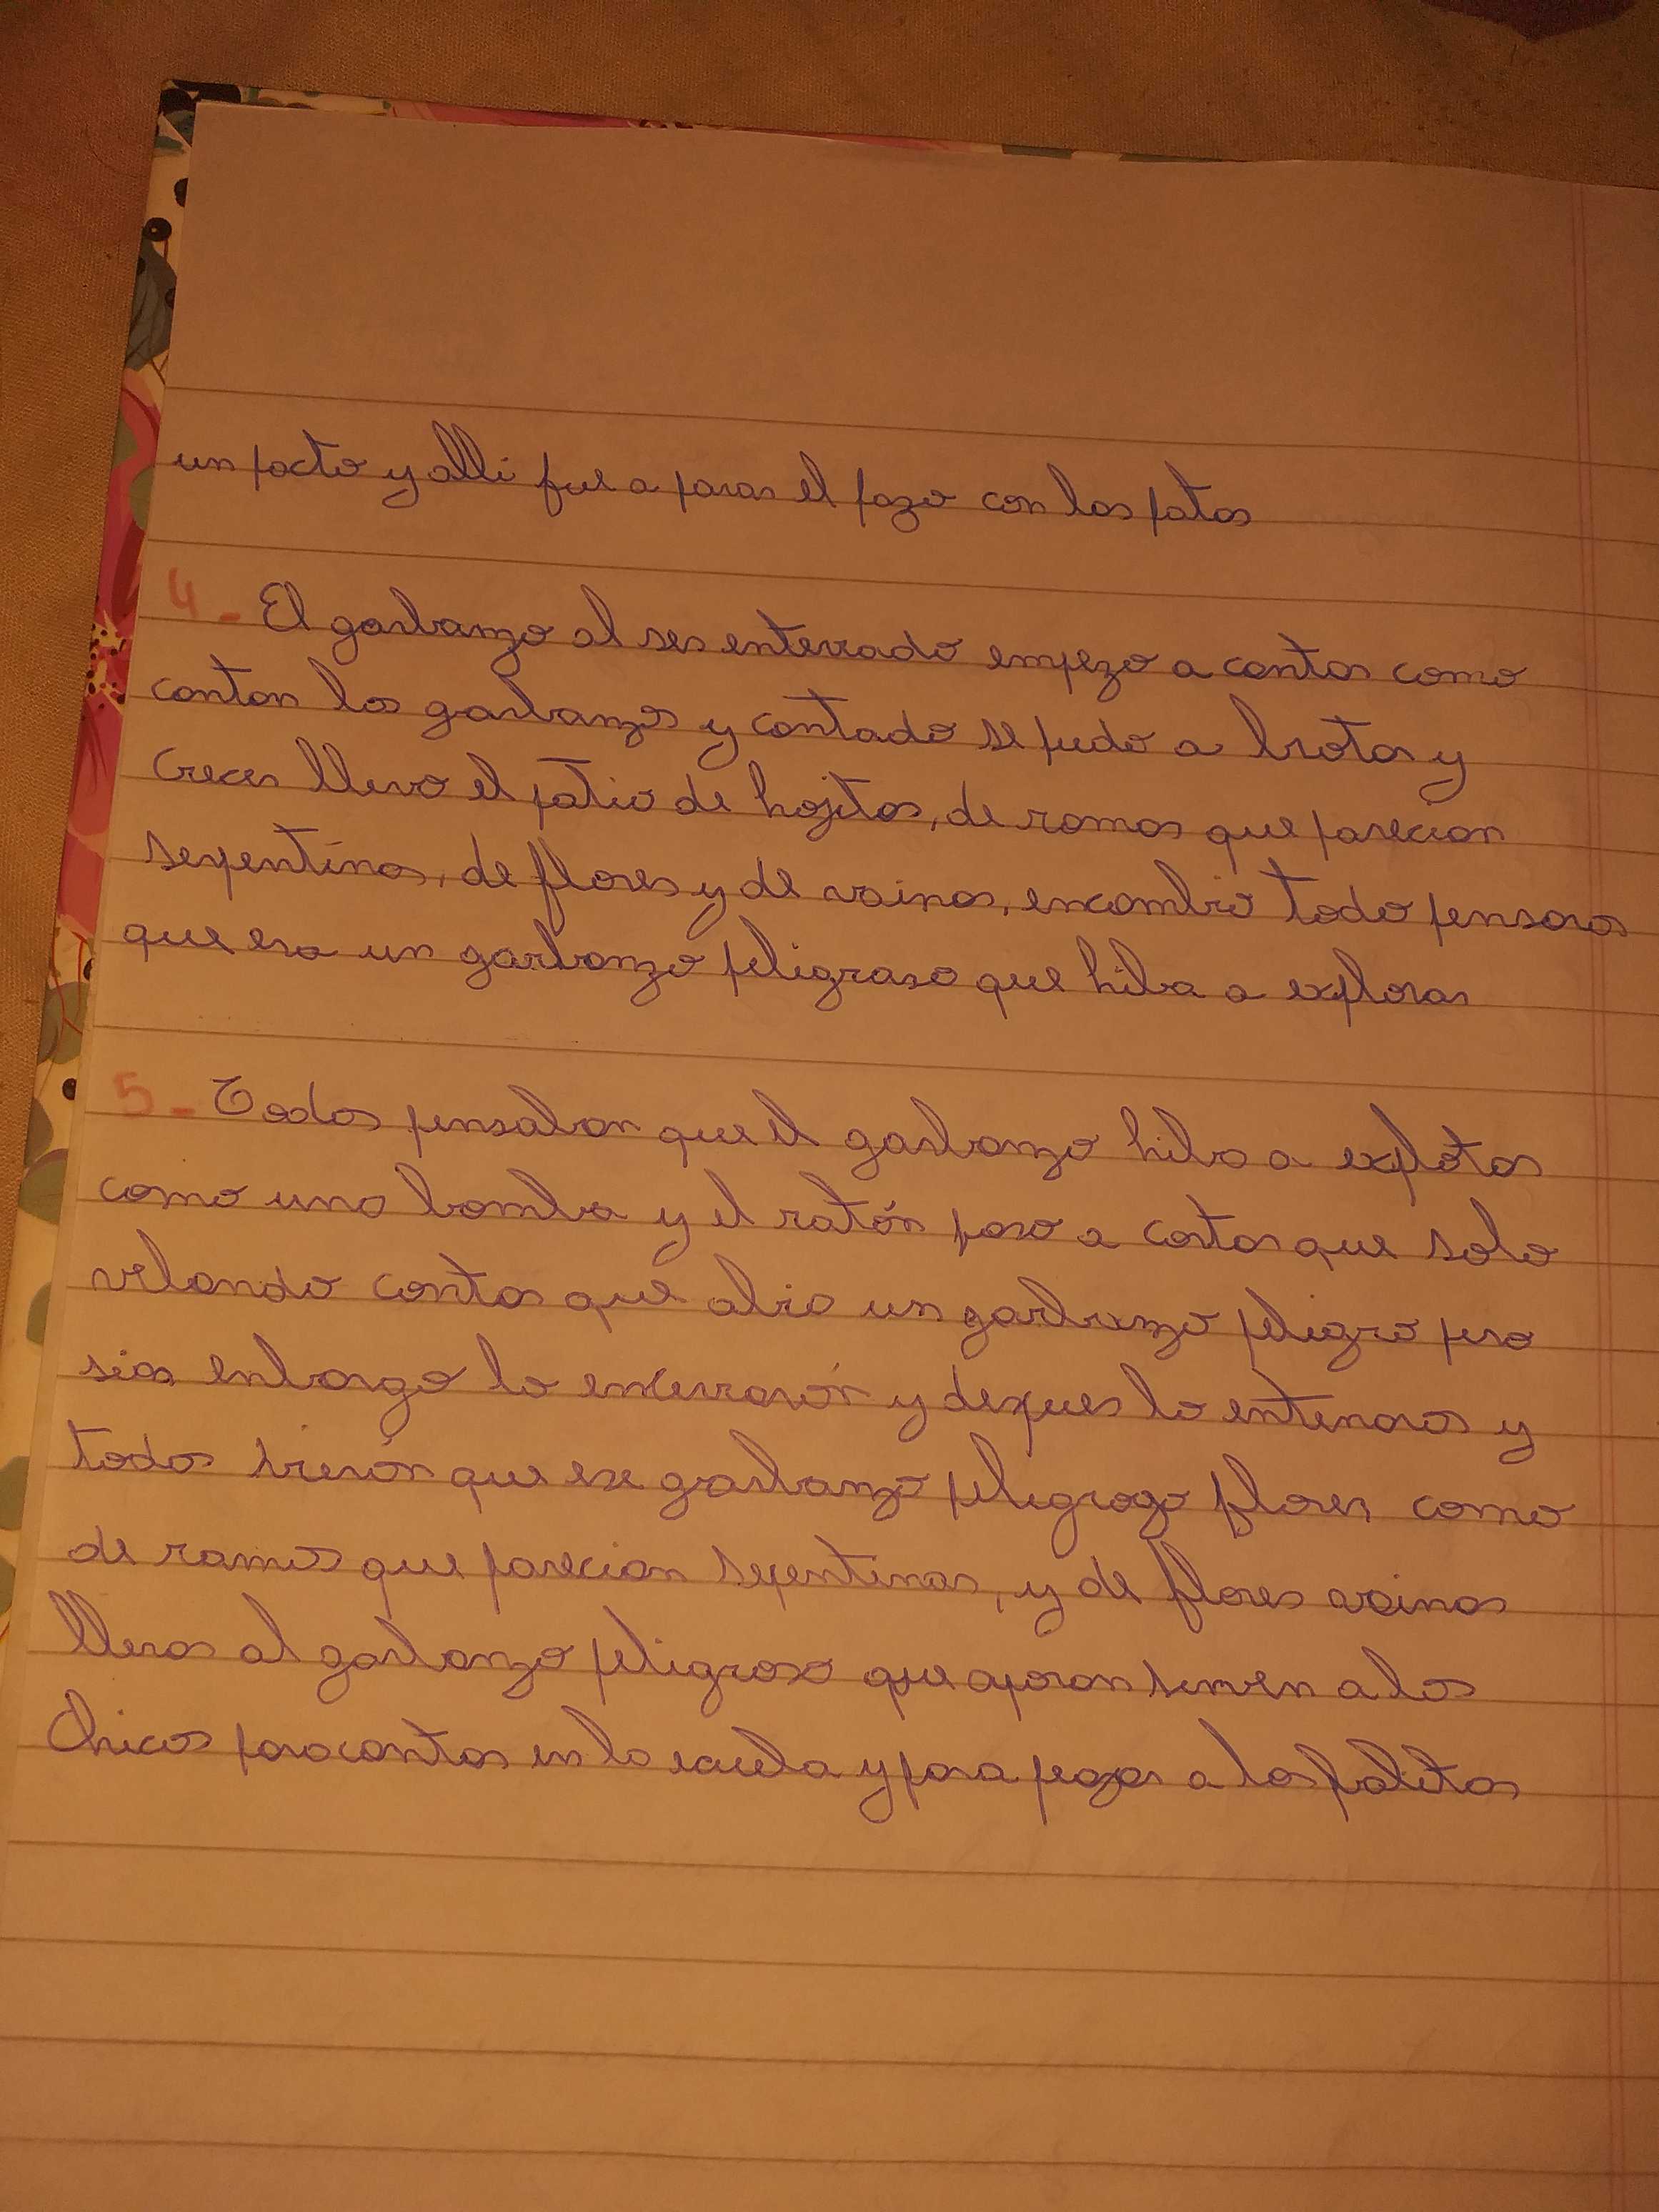 un pacto y alli fue a parar el pozo con los patos
4- El garbanzo al ser enterrado empezo a cantar como
cantan los garbanzos y cantado se pudo a brotar y
Crecer lleno el patio de hojitas, de ramas que parecian
serpentinas, de flores y de vainas, encambio todo pensaros
que era un garbanzo peligraso que hiba a explorar
5- Todos pensaban que el garbanzo hiba a explotar
como una bomba y el ratón paso a contar que solo
velando contar que abrio un garbanzo peligro pero
sin enbargo lo encerrarón y despues lo enteraros y
todos vierón que ese garbanzo peligrogo flores como
de ramos que parecian serpentinas, y de flores vainas
lleros al garbanzo peligroso que aporan sirven a los
Chicos para contar en la escuela y para pegar a los palitos